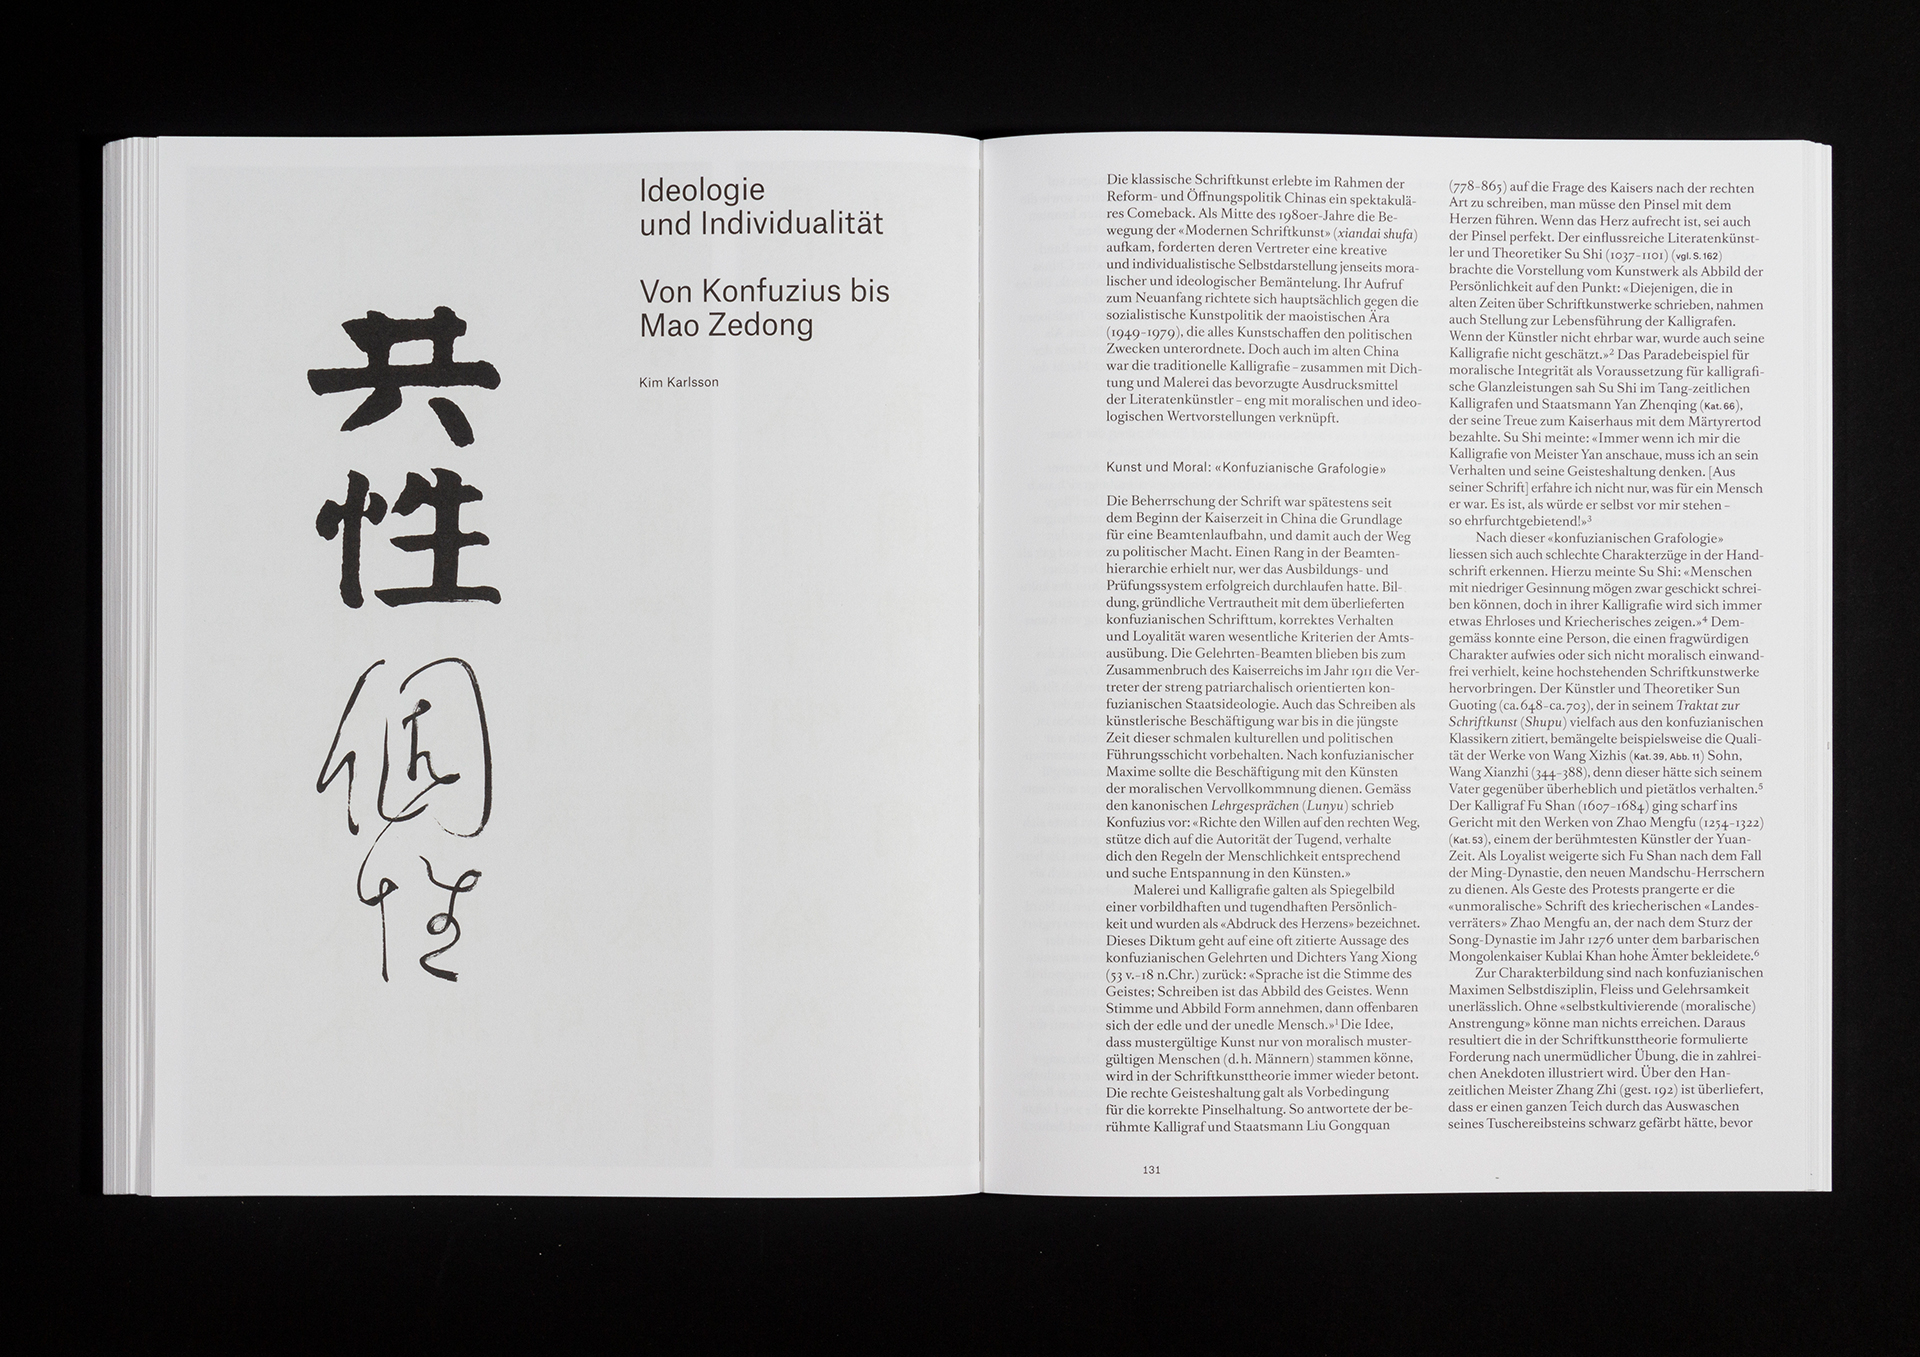 共
性
個
性
Ideologie
und Individualität
Von Konfuzius bis
Mao Zedong
Kim Karlsson
Die klassische Schriftkunst erlebte im Rahmen der
Reform- und Öffnungspolitik Chinas ein spektakulä-
res Comeback. Als Mitte des 1980er-Jahre die Be-
wegung der «Modernen Schriftkunst» (xiandai shufa)
aufkam, forderten deren Vertreter eine kreative
und individualistische Selbstdarstellung jenseits mora-
lischer und ideologischer Bemäntelung. Ihr Aufruf
zum Neuanfang richtete sich hauptsächlich gegen die
sozialistische Kunstpolitik der maoistischen Ära
(1949–1979), die alles Kunstschaffen den politischen
Zwecken unterordnete. Doch auch im alten China
war die traditionelle Kalligrafie – zusammen mit Dich-
tung und Malerei das bevorzugte Ausdrucksmittel
der Literatenkünstler – eng mit moralischen und ideo-
logischen Wertvorstellungen verknüpft.
Kunst und Moral: «Konfuzianische Grafologie»
Die Beherrschung der Schrift war spätestens seit
dem Beginn der Kaiserzeit in China die Grundlage
für eine Beamtenlaufbahn, und damit auch der Weg
zu politischer Macht. Einen Rang in der Beamten-
hierarchie erhielt nur, wer das Ausbildungs- und
Prüfungssystem erfolgreich durchlaufen hatte. Bil-
dung, gründliche Vertrautheit mit dem überlieferten
konfuzianischen Schrifttum, korrektes Verhalten
und Loyalität waren wesentliche Kriterien der Amts-
ausübung. Die Gelehrten-Beamten blieben bis zum
Zusammenbruch des Kaiserreichs im Jahr 1911 die Ver-
treter der streng patriarchalisch orientierten kon-
fuzianischen Staatsideologie. Auch das Schreiben als
künstlerische Beschäftigung war bis in die jüngste
Zeit dieser schmalen kulturellen und politischen
Führungsschicht vorbehalten. Nach konfuzianischer
Maxime sollte die Beschäftigung mit den Künsten
der moralischen Vervollkommnung dienen. Gemäss
den kanonischen Lehrgesprächen (Lunyu) schrieb
Konfuzius vor: «Richte den Willen auf den rechten Weg,
stütze dich auf die Autorität der Tugend, verhalte
dich den Regeln der Menschlichkeit entsprechend
und suche Entspannung in den Künsten.»
Malerei und Kalligrafie galten als Spiegelbild
einer vorbildhaften und tugendhaften Persönlich-
keit und wurden als «Abdruck des Herzens» bezeichnet.
Dieses Diktum geht auf eine oft zitierte Aussage des
konfuzianischen Gelehrten und Dichters Yang Xiong
(53 v.–18 n.Chr.) zurück: «Sprache ist die Stimme des
Geistes; Schreiben ist das Abbild des Geistes. Wenn
Stimme und Abbild Form annehmen, dann offenbaren
sich der edle und der unedle Mensch.»1 Die Idee,
dass mustergültige Kunst nur von moralisch muster-
gültigen Menschen (d.h. Männern) stammen könne,
wird in der Schriftkunsttheorie immer wieder betont.
Die rechte Geisteshaltung galt als Vorbedingung
für die korrekte Pinselhaltung. So antwortete der be-
rühmte Kalligraf und Staatsmann Liu Gongquan
131
(778–865) auf die Frage des Kaisers nach der rechten
Art zu schreiben, man müsse den Pinsel mit dem
Herzen führen. Wenn das Herz aufrecht ist, sei auch
der Pinsel perfekt. Der einflussreiche Literatenkünst-
ler und Theoretiker Su Shi (1037–1101) (vgl. S. 162)
brachte die Vorstellung vom Kunstwerk als Abbild der
Persönlichkeit auf den Punkt: «Diejenigen, die in
alten Zeiten über Schriftkunstwerke schrieben, nahmen
auch Stellung zur Lebensführung der Kalligrafen.
Wenn der Künstler nicht ehrbar war, wurde auch seine
Kalligrafie nicht geschätzt.»2 Das Paradebeispiel für
moralische Integrität als Voraussetzung für kalligrafi-
sche Glanzleistungen sah Su Shi im Tang-zeitlichen
Kalligrafen und Staatsmann Yan Zhenqing (Kat. 66),
der seine Treue zum Kaiserhaus mit dem Märtyrertod
bezahlte. Su Shi meinte: «Immer wenn ich mir die
Kalligrafie von Meister Yan anschaue, muss ich an sein
Verhalten und seine Geisteshaltung denken. [Aus
seiner Schrift] erfahre ich nicht nur, was für ein Mensch
er war. Es ist, als würde er selbst vor mir stehen –
so ehrfurchtgebietend!»3
Nach dieser «konfuzianischen Grafologie»
liessen sich auch schlechte Charakterzüge in der Hand-
schrift erkennen. Hierzu meinte Su Shi: «Menschen
mit niedriger Gesinnung mögen zwar geschickt schrei-
ben können, doch in ihrer Kalligrafie wird sich immer
etwas Ehrloses und Kriecherisches zeigen.»4 Dem-
gemäss konnte eine Person, die einen fragwürdigen
Charakter aufwies oder sich nicht moralisch einwand-
frei verhielt, keine hochstehenden Schriftkunstwerke
hervorbringen. Der Künstler und Theoretiker Sun
Guoting (ca. 648–ca. 703), der in seinem Traktat zur
Schriftkunst (Shupu) vielfach aus den konfuzianischen
Klassikern zitiert, bemängelte beispielsweise die Quali-
tät der Werke von Wang Xizhis (Kat. 39, Abb. 11) Sohn,
Wang Xianzhi (344–388), denn dieser hätte sich seinem
Vater gegenüber überheblich und pietätlos verhalten.5
Der Kalligraf Fu Shan (1607–1684) ging scharf ins
Gericht mit den Werken von Zhao Mengfu (1254–1322)
(Kat. 53), einem der berühmtesten Künstler der Yuan-
Zeit. Als Loyalist weigerte sich Fu Shan nach dem Fall
der Ming-Dynastie, den neuen Mandschu-Herrschern
zu dienen. Als Geste des Protests prangerte er die
«unmoralische» Schrift des kriecherischen «Landes-
verräters» Zhao Mengfu an, der nach dem Sturz der
Song-Dynastie im Jahr 1276 unter dem barbarischen
Mongolenkaiser Kublai Khan hohe Ämter bekleidete.6
Zur Charakterbildung sind nach konfuzianischen
Maximen Selbstdisziplin, Fleiss und Gelehrsamkeit
unerlässlich. Ohne «selbstkultivierende (moralische)
Anstrengung» könne man nichts erreichen. Daraus
resultiert die in der Schriftkunsttheorie formulierte
Forderung nach unermüdlicher Übung, die in zahlrei-
chen Anekdoten illustriert wird. Über den Han-
zeitlichen Meister Zhang Zhi (gest. 192) ist überliefert,
dass er einen ganzen Teich durch das Auswaschen
seines Tuschereibsteins schwarz gefärbt hätte, bevor